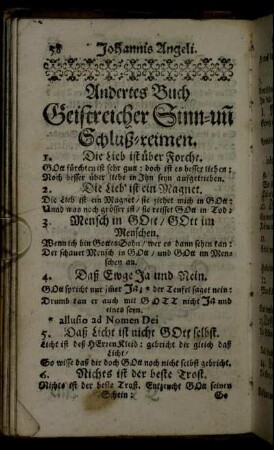 58 Johannis Angeli.
Andertes Buch
Geistreicher Sinn-uñ
Schluß-reimen.
1. Die Lieb ist über Forcht.
GOtt fürchten ist sehr gut: doch ist es besser lieben:
Noch besser über liebe in Ihn seyn aufgetrieben.
2. Die Lieb' ist ein Magnet.
Die Lieb' ist ein Magnet/ sie ziehet mich in GOtt:
Und was noch grösser ist/ sie reisset GOtt in Tod:
3. Mensch in GOtt/ GOtt im
Menschen.
Wenn ich bin Gottes Sohn/ wer es dann sehen kan:
Der schauet Mensch in GOtt/ und GOtt im Men-
schen an.
4. Daß Ewge Ja und Nein.
GOtt spricht nur jmer Ja; * der Teufel saget nein:
Drumb kan er auch mit GOTT nicht Ja und
eines seyn.
* allusio ad Nomen Dei
5. Daß Licht ist nicht GOtt selbst.
Licht ist deß HErren Kleid: gebricht dir gleich daß
Licht/
So wisse daß dir doch GOtt noch nicht selbst gebricht.
6. Nichts ist der beste Trost.
Nichts ist der beste Trost. Entzeucht GOtt seinen
Schein:
So